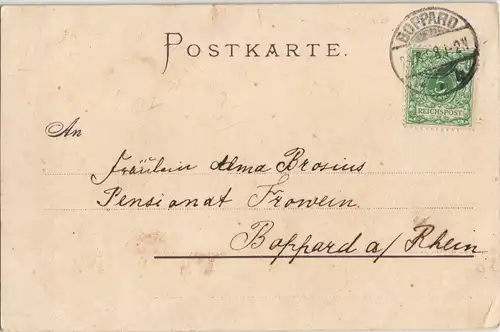 POSTKARTE.
BOPPARD
8 1-2N
5
REICHSPOST
An
Fräulein Alma Brosius
Pensionat Frowein.
Boppard a/Rhein